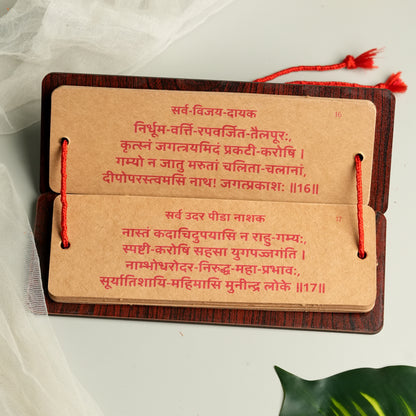 16
सर्व-विजय-दायक
निर्धूम-वर्त्ति-रपवर्जित-तैलपूरः,
कृत्स्नं जगत्त्रयमिदं प्रकटी-करोषि ।
गम्यो न जातु मरुतां चलिता-चलानां,
दीपोपरस्त्वमसि नाथ! जगत्प्रकाशः ॥16॥
17
सर्व उदर पीडा नाशक
नास्तं कदाचिदुपयासि न राहु-गम्यः,
स्पष्टी-करोषि सहसा युगपज्जगंति ।
नाम्भोधरोदर-निरुद्ध-महा-प्रभावः,
सूर्यातिशायि-महिमासि मुनीन्द्र लोके ॥17॥